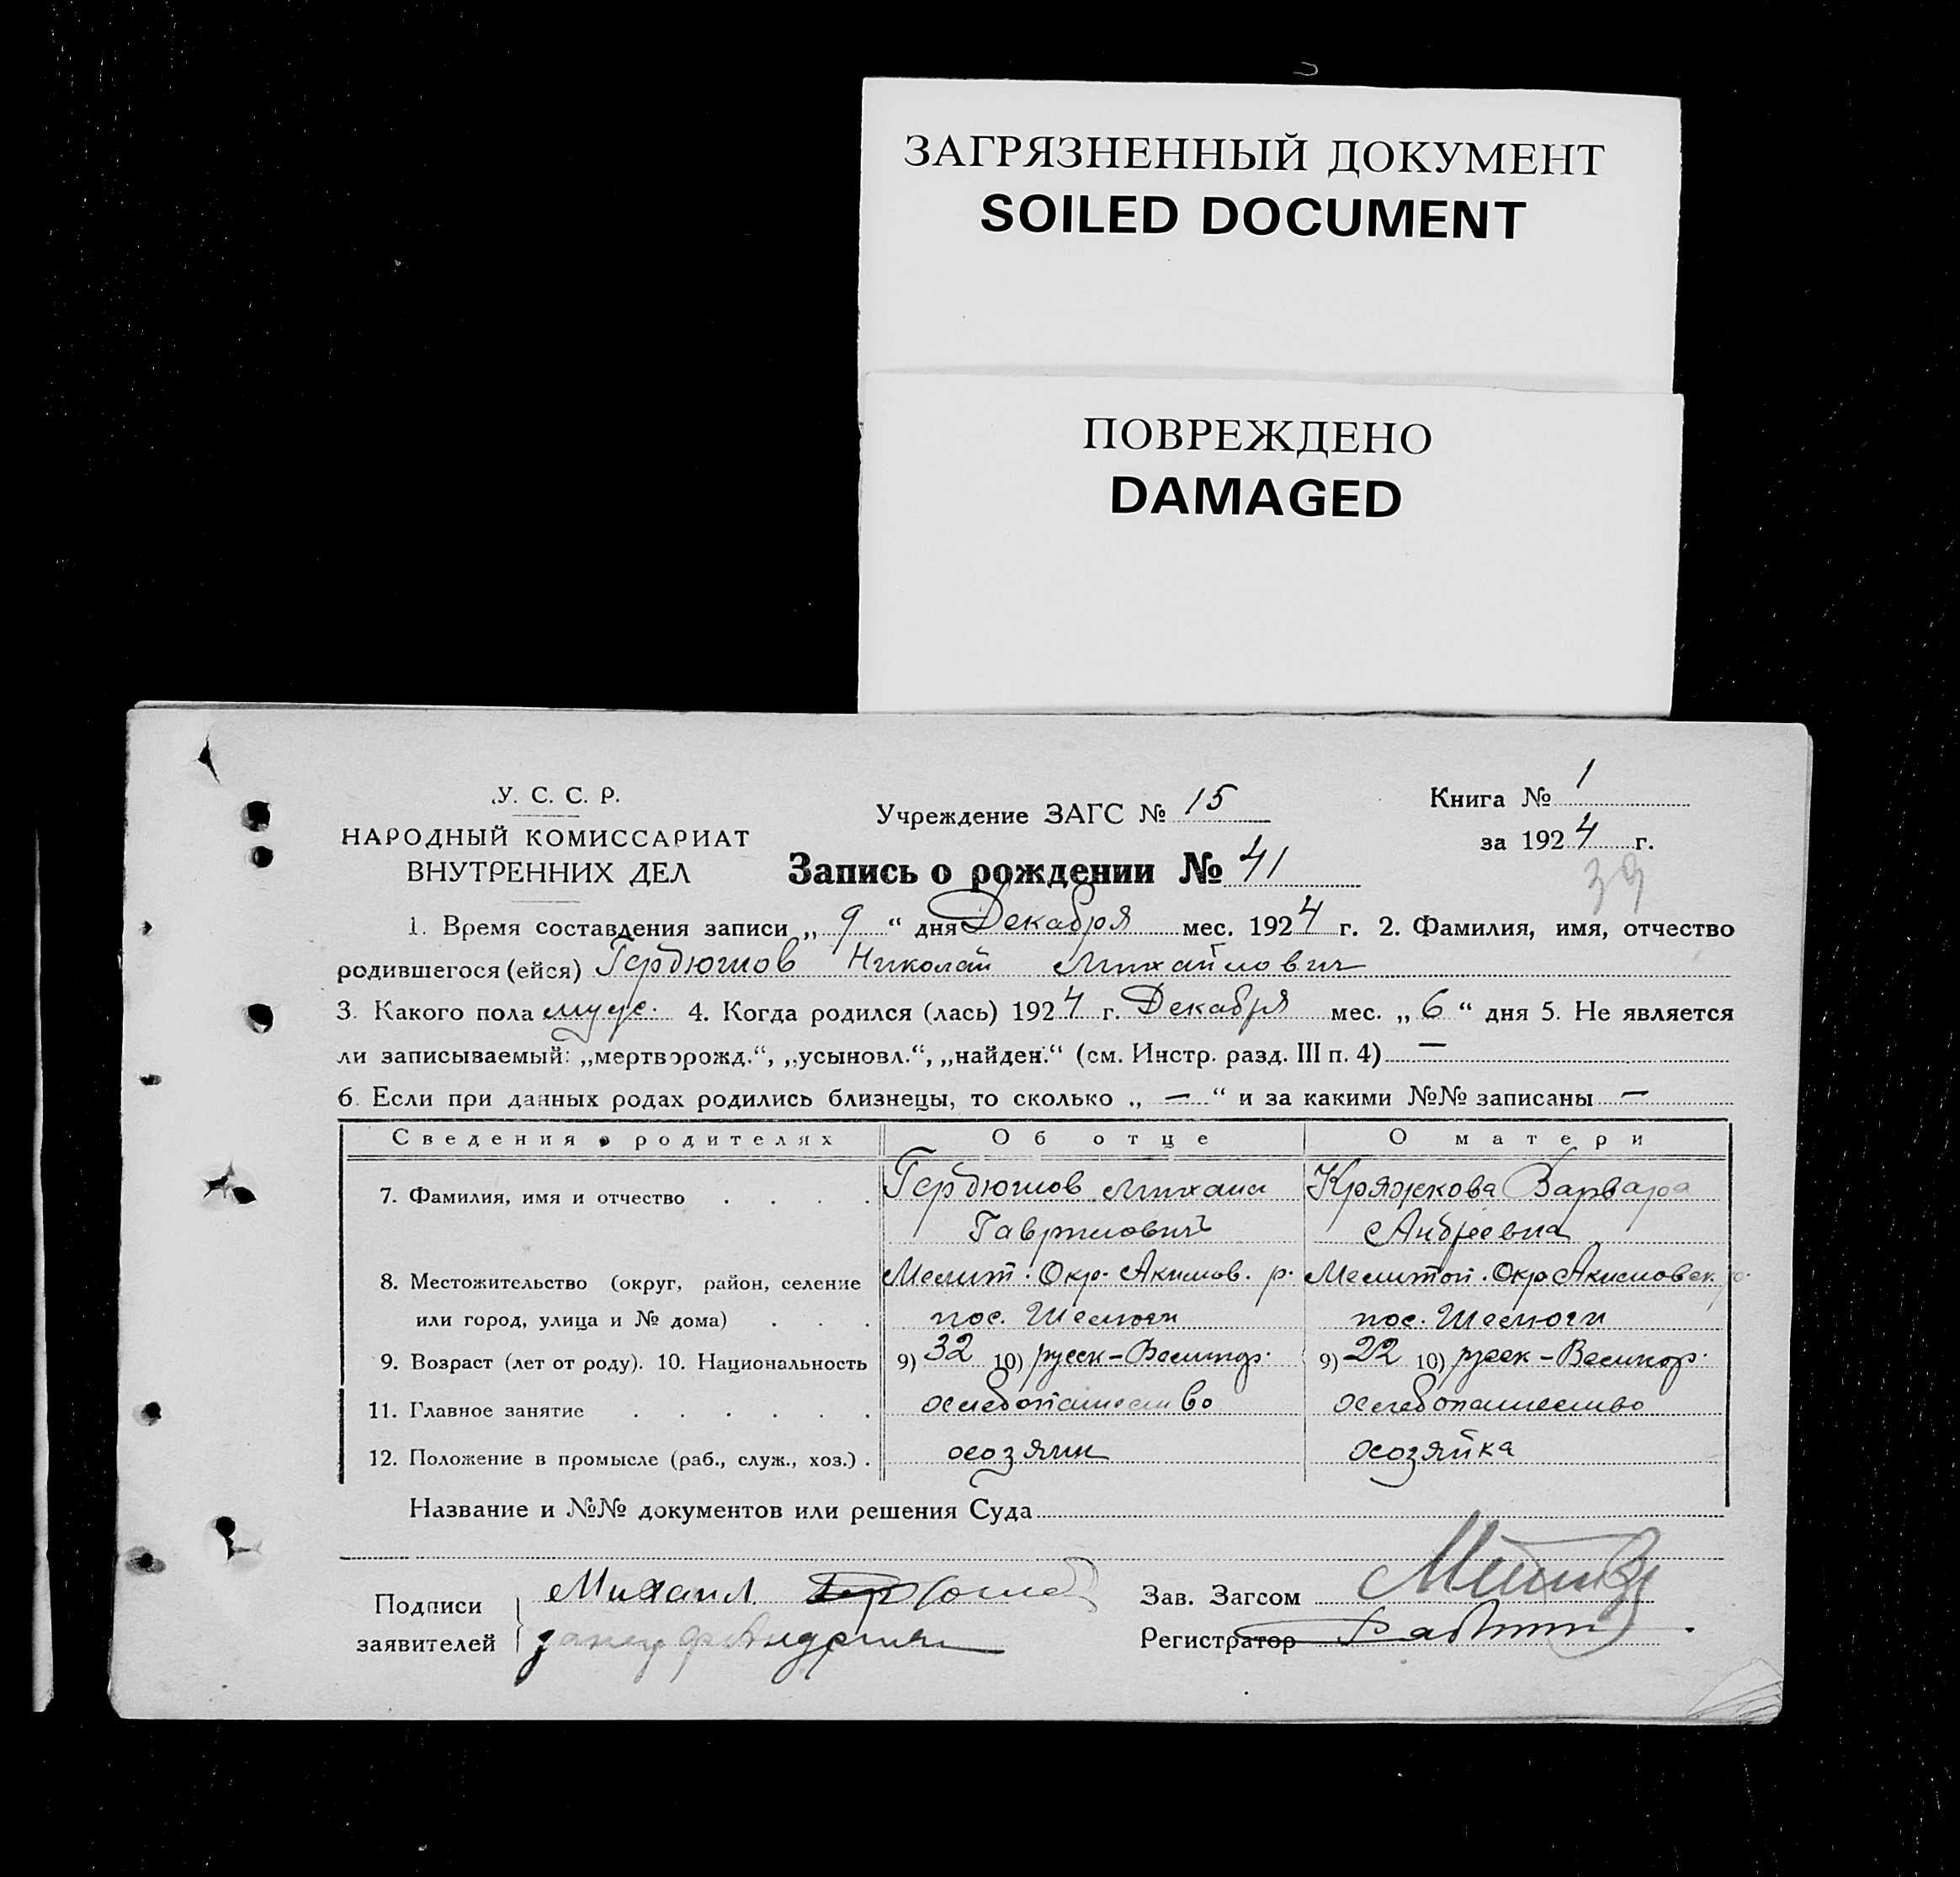 ЗАГРЯЗНЕННЫЙ ДОКУМЕНТ
SOILED DOCUMENT
ПОВРЕЖДЕНО
DAMAGED
У. С. С. Р.
НАРОДНЫЙ КОМИССАРИАТ
ВНУТРЕННИХ ДЕЛ
Учреждение ЗАГС № 15
Книга № 1
за 1924 г.
39
Запись о рождении № 41
1. Время составления записи „ 9 “ дня Декабря мес. 1924 г. 2. Фамилия, имя, отчество
родившегося (ейся) Гербюшов Николай Михайлович
3. Какого пола муж. 4. Когда родился (лась) 1924 г. Декабря мес. „ 6 “ дня 5. Не является
ли записываемый: „мертворожд.“, „усыновл.“, „найден.“ (см. Инстр. разд. III п. 4) —
6. Если при данных родах родились близнецы, то сколько „ — “ и за какими №№ записаны —
Сведения о родителях Об отце О матери
7. Фамилия, имя и отчество . . . . Гербюшов Михаил Кряжкова Варвара
Гаврилович Андреевна
8. Местожительство (округ, район, селение Мелит. Окр. Акимов. р. Мелитоп. Окр Акимовск. р.
или город, улица и № дома) . . . пос. Шелюги пос. Шелюги
9. Возраст (лет от роду). 10. Национальность 9) 32 10) русск-Великор. 9) 22 10) русск-Великор.
11. Главное занятие . . . . . . хлебопашество хлебопашество
12. Положение в промысле (раб., служ., хоз.) . хозяин хозяйка
Название и №№ документов или решения Суда
Подписи Михаил
заявителей
Зав. Загсом
Регистратор